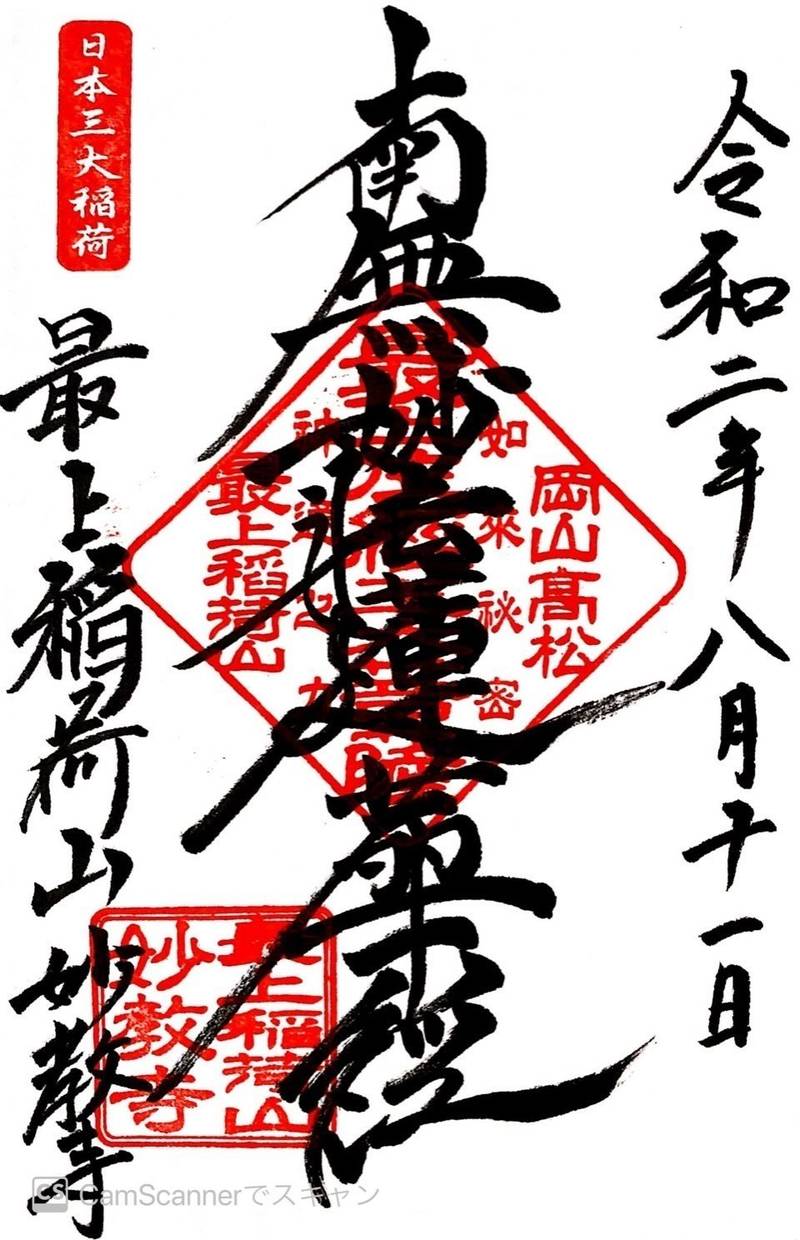 令和二年八月十一日
南無妙法蓮華経
日本三大稲荷
最上稲荷山妙教寺
岡山高松
如来秘密
神通之力
最上稲荷山
最上稲荷山
妙教寺
CamScannerでスキャン